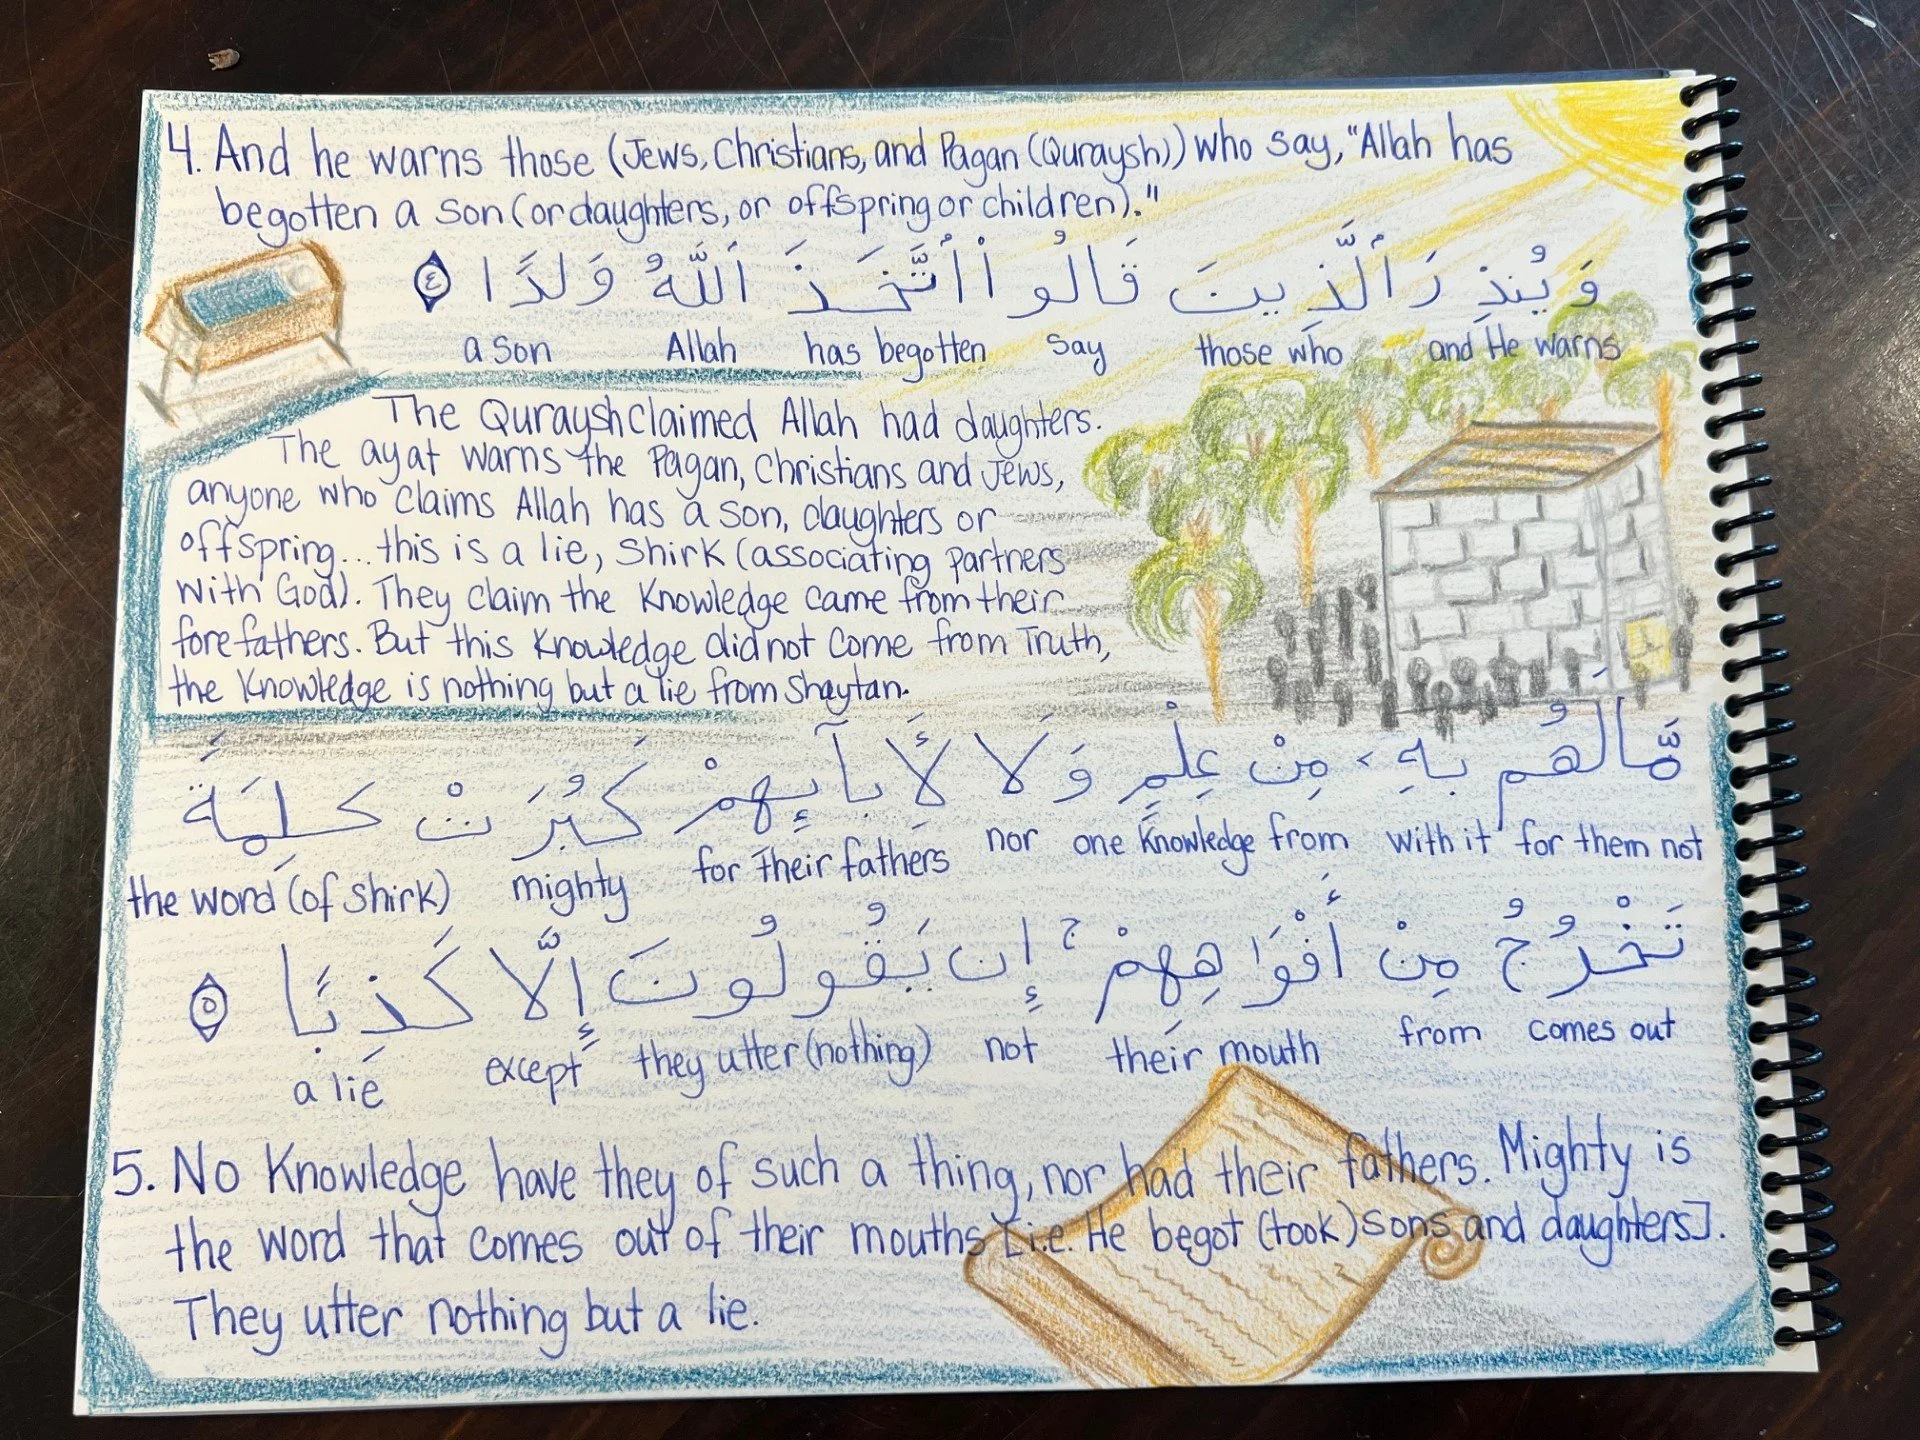 4. And he warns those (Jews, Christians, and Pagan (Quraysh)) who say, "Allah has
begotten a son (or daughters, or offspring or children)."
وَيُنذِرَ ٱلَّذِينَ قَالُوا۟ ٱتَّخَذَ ٱللَّهُ وَلَدًا ٤
a son Allah has begotten say those who and He warns
The Quraysh claimed Allah had daughters.
The ayat warns the Pagan, Christians and Jews,
anyone who claims Allah has a son, daughters or
offspring... this is a lie, shirk (associating partners
with God). They claim the knowledge came from their
forefathers. But this knowledge did not come from Truth,
the knowledge is nothing but a lie from Shaytan.
مَّا لَهُم بِهِۦ مِنْ عِلْمٍ وَلَا لِأَبَآئِهِمْ كَبُرَتْ كَلِمَةً
the word (of shirk) mighty for their fathers nor one knowledge from with it for them not
تَخْرُجُ مِنْ أَفْوَاهِهِمْ ۚ إِن يَقُولُونَ إِلَّا كَذِبًا ٥
a lie except they utter (nothing) not their mouth from comes out
5. No knowledge have they of such a thing, nor had their fathers. Mighty is
the word that comes out of their mouths [i.e. He begot (took) sons and daughters].
They utter nothing but a lie.